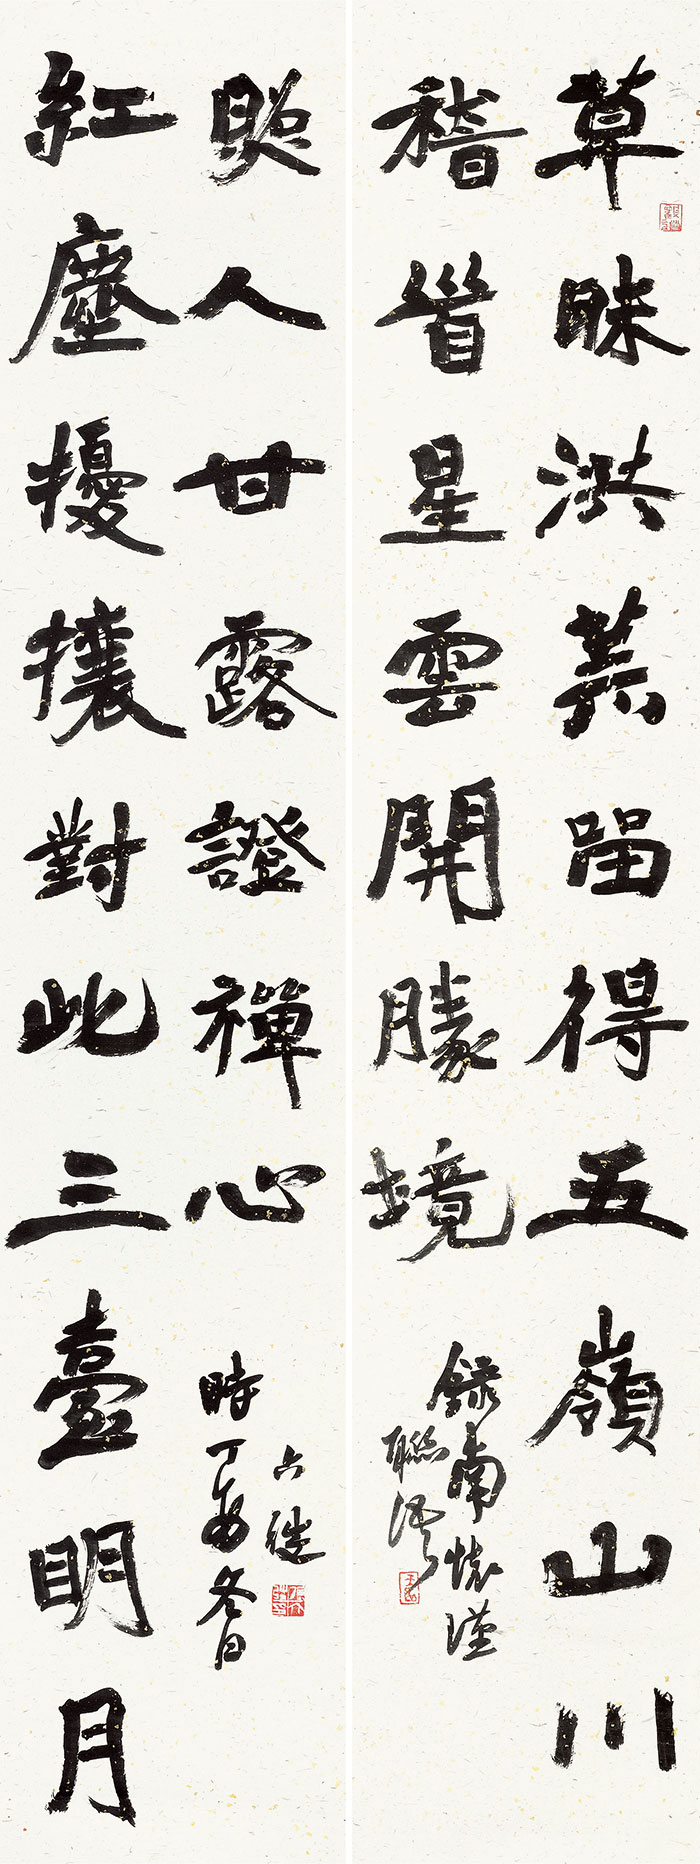 草昧洪荒留得五嶺山川
稽首星雲開勝境
錄南懷瑾
聯
紅塵擾攘對此三臺明月
照人甘露證禪心
時丁酉冬日